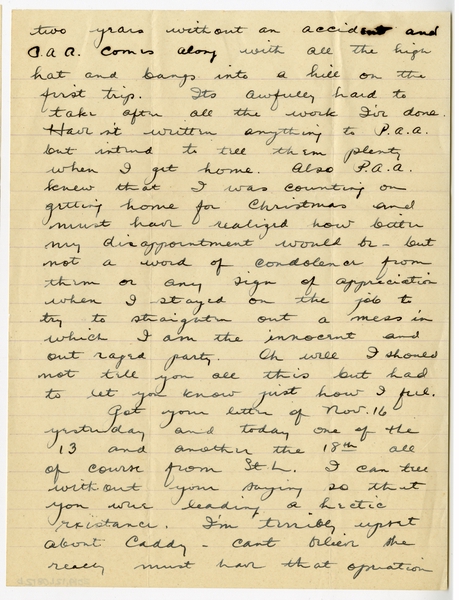 two years without an accident and
P.A.A. comes along with all the high
hat and bangs into a hill on the
first trip. Its awfully hard to
take after all the work I've done.
Haven't written anything to P.A.A.
but intend to tell them plenty
when I get home. Also P.A.A.
knew that I was counting on
getting home for Christmas and
must have realized how bitter
my disappointment would be - but
not a word of condolence from
them or any sign of appreciation
when I stayed on the job to
try to straighten out a mess in
which I am the innocent and
out raged party. Oh well I should
not tell you all this but had
to let you know just how I feel.
Got your letter of Nov. 16
yesterday and today one of the
13 and another the 18th all
of course from St L. I can tell
without your saying so that
you were leading a hectic
existance. I'm terribly upset
about Caddy - cant believe she
really must have that operation